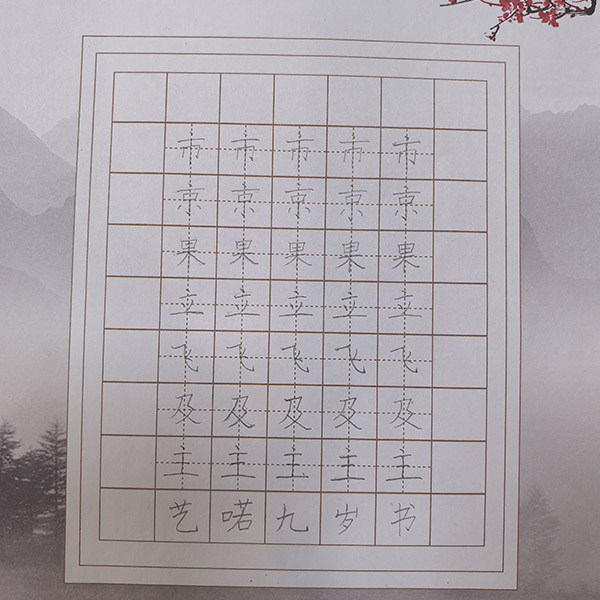 市市市市市
京京京京京
果果果果果
立立立立立
飞飞飞飞飞
及及及及及
主主主主主
艺喏九岁书